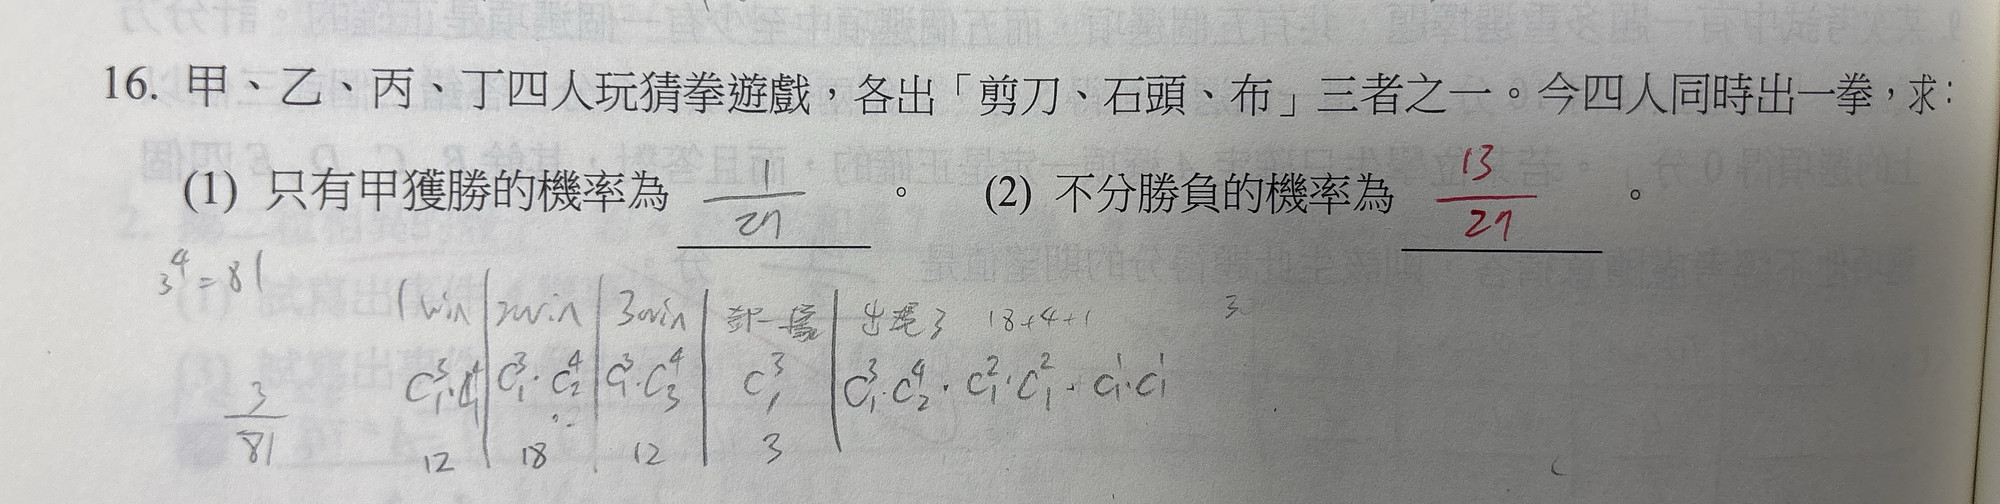 16. 甲、乙、丙、丁四人玩猜拳遊戲，各出「剪刀、石頭、布」三者之一。今四人同時出一拳，求：
(1) 只有甲獲勝的機率為 1/27 。 (2) 不分勝負的機率為 13/27 。
3⁴=81
1win 2win 3win 都一樣 出現3 18+4+1 3
3/81 C³₁·C⁴₁ C³₁·C⁴₂ C³₁·C⁴₃ C³₁ C³₁·C⁴₂·C²₁·C²₁·C¹₁·C¹₁
12 18 12 3